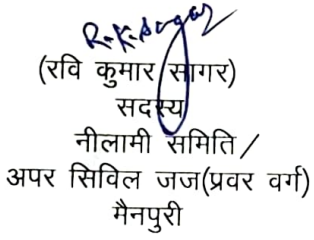 R.K.Sagar
(रवि कुमार सागर)
सदस्य
नीलामी समिति /
अपर सिविल जज(प्रवर वर्ग)
मैनपुरी